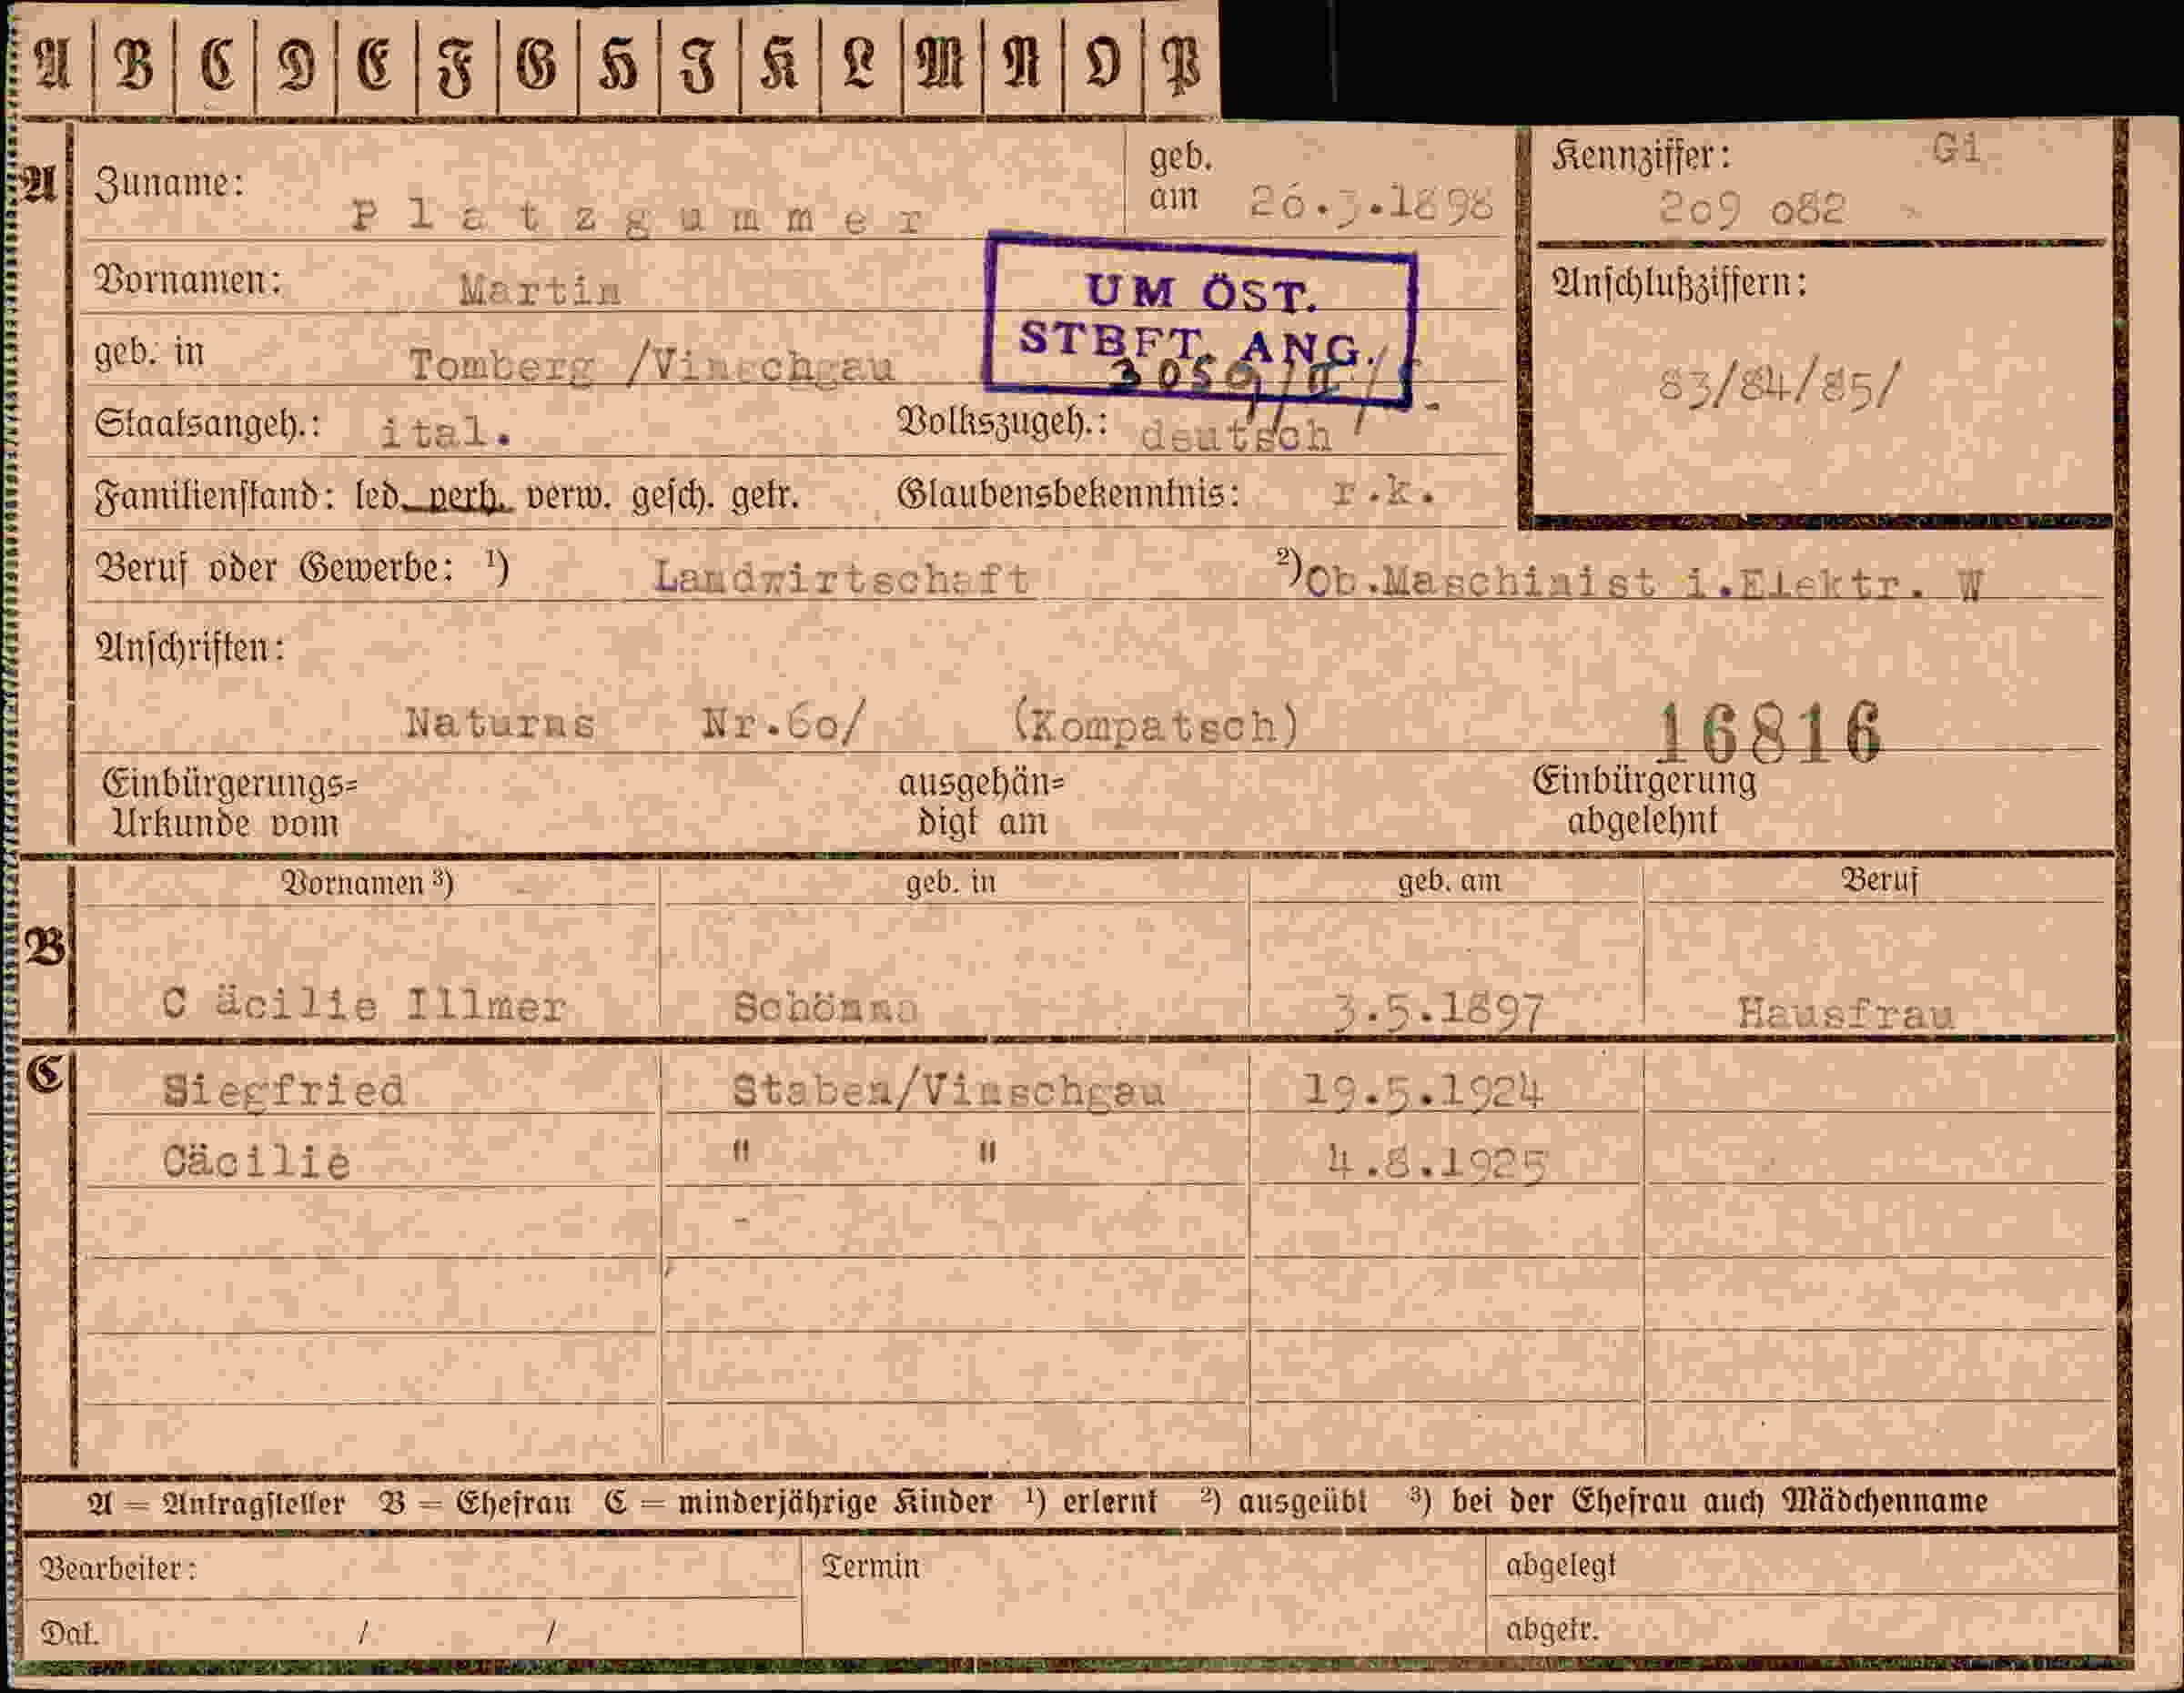 A B C D E F G H I K L M N O P
A
Zuname: Platzgummer
geb. am 26.3.1898
Kennziffer: Gi
209 082
Vornamen: Martin
UM ÖST.
STBFT. ANG.
Anschlußziffern:
83/84/85/
geb. in Tomberg /Vinschgau
Staatsangeh.: ital. Volkszugeh.: deutsch
Familienstand: led. verh. verw. gesch. getr. Glaubensbekenntnis: r.k.
Beruf oder Gewerbe: ¹) Landwirtschaft ²) Ob.Maschinist i.Elektr. W
Anschriften:
Naturns Nr.60/ (Kompatsch) 16816
Einbürgerungs= Urkunde vom
ausgehän= digt am
Einbürgerung abgelehnt
Vornamen ³) geb. in geb. am Beruf
B
C äcilie Illmer Schönna 3.5.1897 Hausfrau
C
Siegfried Staben/Vinschgau 19.5.1924
Cäcilie " " 4.8.1925
A = Antragsteller B = Ehefrau C = minderjährige Kinder ¹) erlernt ²) ausgeübt ³) bei der Ehefrau auch Mädchenname
Bearbeiter: Termin abgelegt
Dat. / / abgetr.